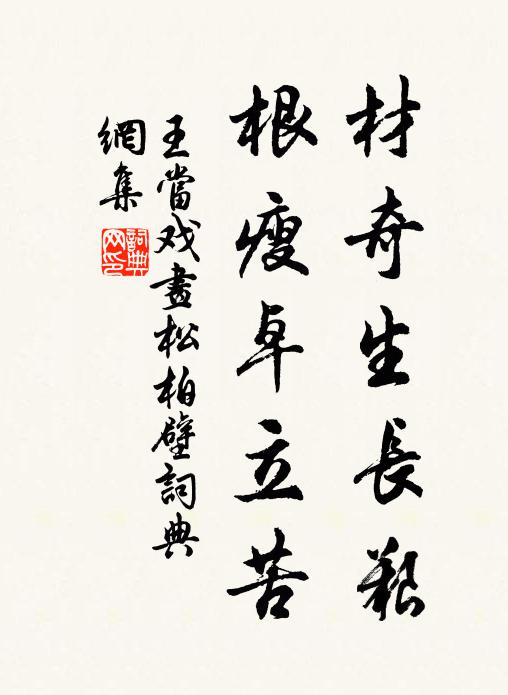 材奇生長艱
根瘦卓立苦
王當戏畫松柏壁詞典
網集
詞典
网印